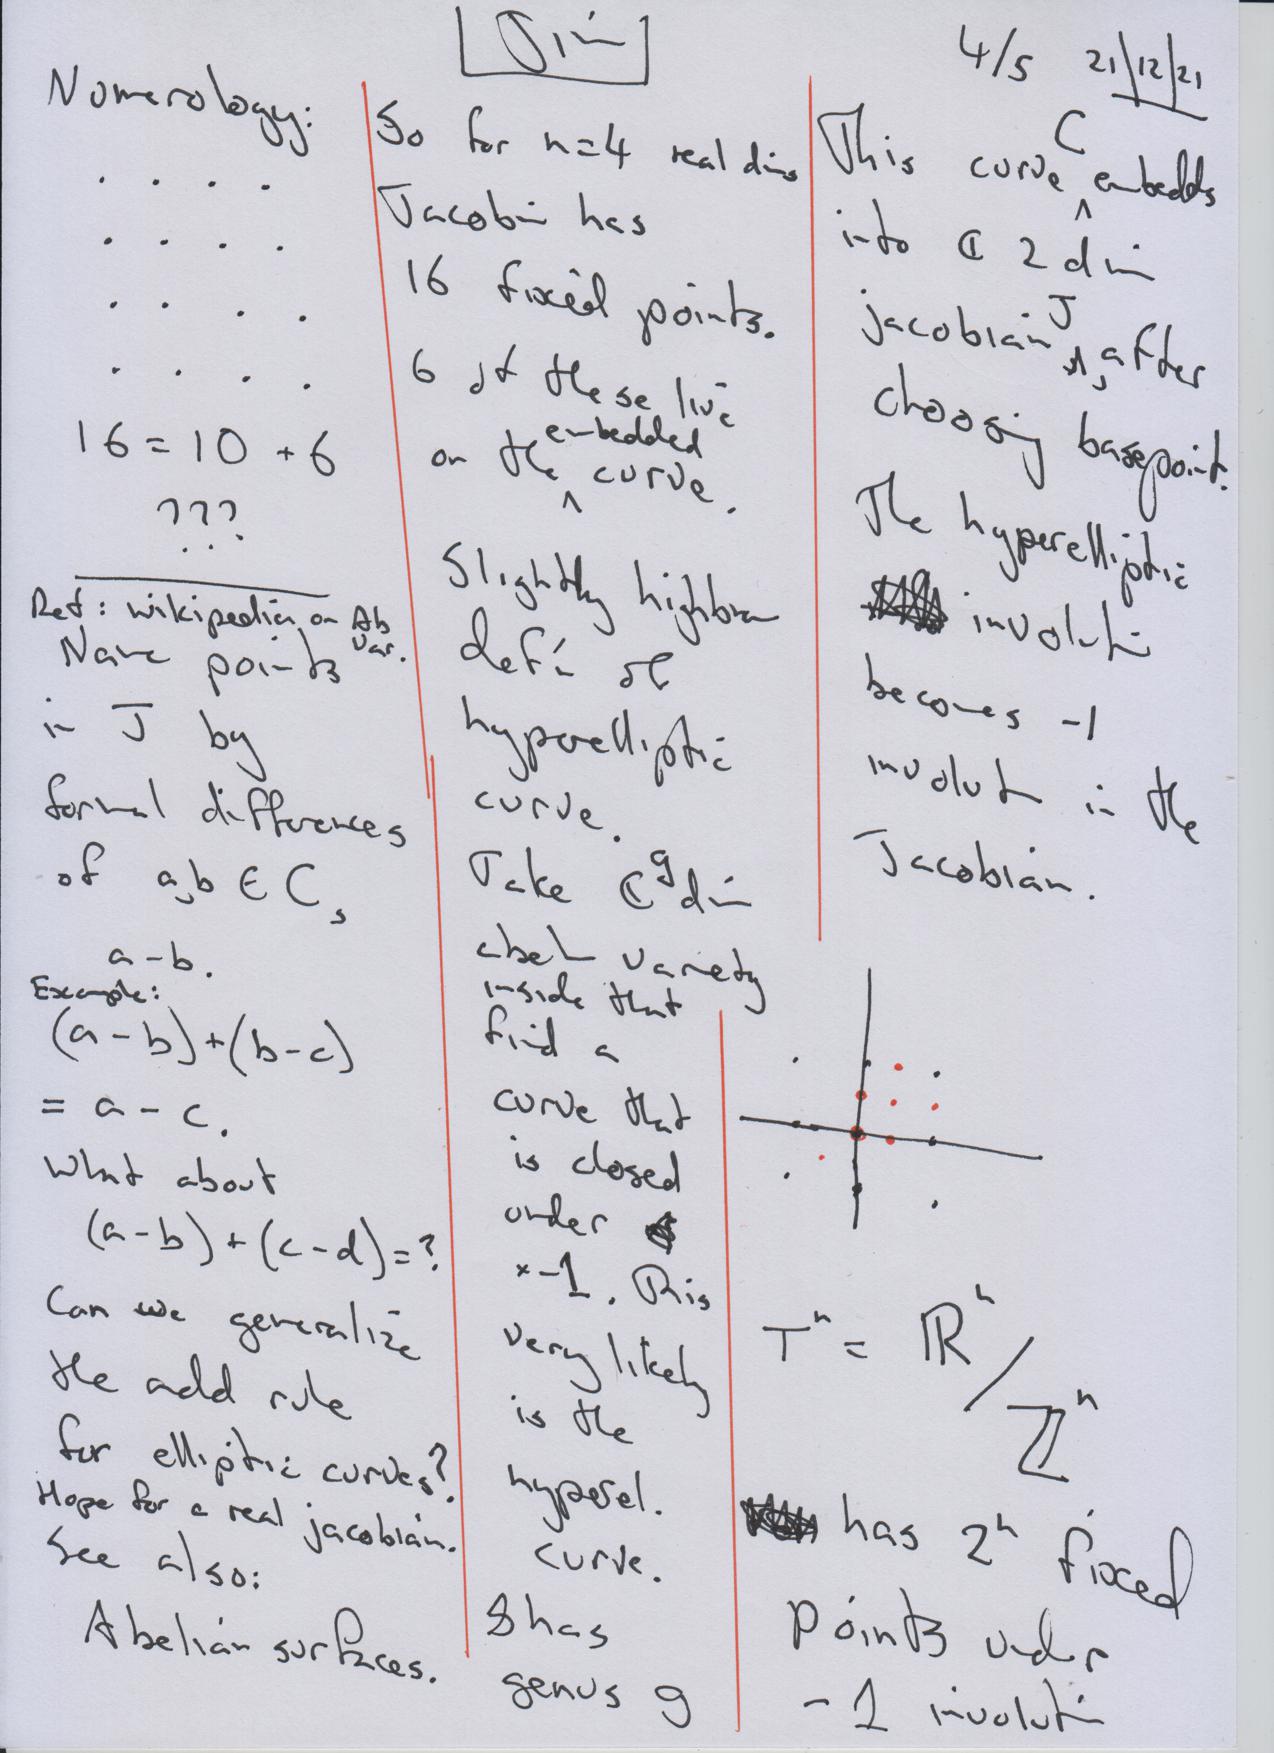 Jim
4/5 21/12/21
Numerology:
16 = 10 + 6
???
Ref: wikipedia on Ab
Var.
Name points
in J by
formal differences
of a,b ∈ C,
a-b.
Example:
(a-b)+(b-c)
= a-c.
What about
(a-b)+(c-d)=?
Can we generalize
the add rule
for elliptic curves?
Hope for a real jacobian.
See also:
Abelian surfaces.
So for n=4 real dims
Jacobin has
16 fixed points.
6 of these live
on the embedded curve.
Slightly highbrow
def'n of
hyperelliptic
curve.
Take ℂ^g dim
abel variety
inside that
find a
curve that
is closed
under
×-1. This
very likely
is the
hyperel.
curve.
& has
genus g
This curve C embedds
into ℂ 2 dim
jacobian J, after
choosing basepoint.
The hyperelliptic
involution
becomes -1
involution in the
Jacobian.
Tⁿ = ℝⁿ/ℤⁿ
has 2ⁿ fixed
points under
-1 involution